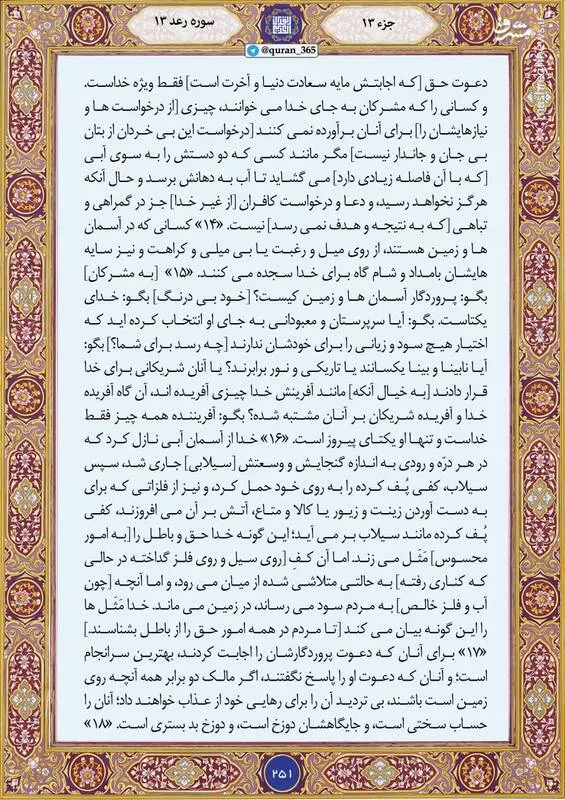 جزء ۱۳
سوره رعد ۱۳
مشرق
@quran_365
دعوت حق [که اجابتش مایه سعادت دنیا و آخرت است] فقط ویژه خداست.
و کسانی را که مشرکان به جای خدا می خوانند، چیزی [از درخواست ها و
نیازهایشان را] برای آنان برآورده نمی کنند [درخواست این بی خردان از بتان
بی جان و جاندار نیست] مگر مانند کسی که دو دستش را به سوی آبی
[که با آن فاصله زیادی دارد] می گشاید تا آب به دهانش برسد و حال آنکه
هرگز نخواهد رسید، و دعا و درخواست کافران [از غیر خدا] جز در گمراهی و
تباهی [که به نتیجه و هدف نمی رسد] نیست. «۱۴» کسانی که در آسمان
ها و زمین هستند، از روی میل و رغبت یا بی میلی و کراهت و نیز سایه
هایشان بامداد و شام گاه برای خدا سجده می کنند. «۱۵» [به مشرکان]
بگو: پروردگار آسمان ها و زمین کیست؟ [خود بی درنگ] بگو: خدای
یکتاست. بگو: آیا سرپرستان و معبودانی به جای او انتخاب کرده اید که
اختیار هیچ سود و زیانی را برای خودشان ندارند [چه رسد برای شما؟] بگو:
آیا نابینا و بینا یکسانند یا تاریکی و نور برابرند؟ یا آنان شریکانی برای خدا
قرار دادند [به خیال آنکه] مانند آفرینش خدا چیزی آفریده اند، آن گاه آفریده
خدا و آفریده شریکان بر آنان مشتبه شده؟ بگو: آفریننده همه چیز فقط
خداست و تنها او یکتای پیروز است. «۱۶» خدا از آسمان آبی نازل کرد که
در هر درّه و رودی به اندازه گنجایش و وسعتش [سیلابی] جاری شد، سپس
سیلاب، کفی پُف کرده را به روی خود حمل کرد، و نیز از فلزاتی که برای
به دست آوردن زینت و زیور یا کالا و متاع، آتش بر آن می افروزند، کفی
پُف کرده مانند سیلاب بر می آید؛ این گونه خدا حق و باطل را [به امور
محسوس] مَثَل می زند. اما آن کف [روی سیل و روی فلز گداخته در حالی
که کناری رفته] به حالتی متلاشی شده از میان می رود، و اما آنچه [چون
آب و فلز خالص] به مردم سود می رساند، در زمین می ماند. خدا مَثَل ها
را این گونه بیان می کند [تا مردم در همه امور حق را از باطل بشناسند.]
«۱۷» برای آنان که دعوت پروردگارشان را اجابت کردند، بهترین سرانجام
است؛ و آنان که دعوت او را پاسخ نگفتند، اگر مالک دو برابر همه آنچه روی
زمین است باشند، بی تردید آن را برای رهایی خود از عذاب خواهند داد؛ آنان را
حساب سختی است، و جایگاهشان دوزخ است، و دوزخ بد بستری است. «۱۸»
۲۵۱